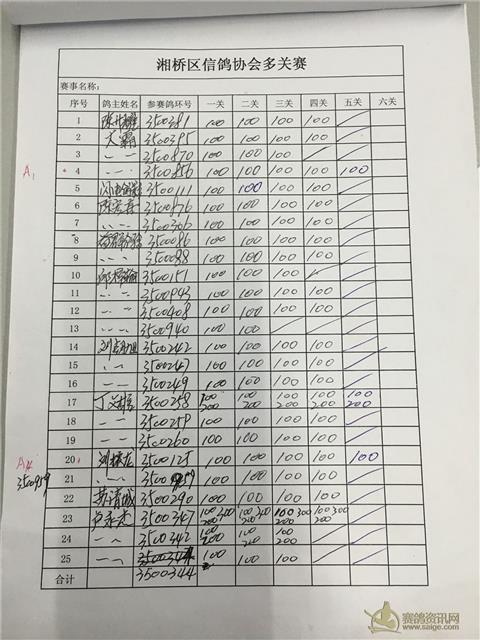 湘桥区信鸽协会多关赛
赛事名称:
序号 鸽主姓名 参赛鸽环号 一关 二关 三关 四关 五关 六关
1 3500381 100 100 100 100
2 大霸 3500395 100 100 100 100
3 〃 〃 3500870 100 100 100
A1 4 〃 〃 3500856 100 100 100 100 100
5 3500111 100 100 100 100
6 3500876 100 100 100 100
7 〃 〃 3500306 100 100 100 100
8 3500086 100 100 100 100
9 〃 〃 3500088 100 100 100 100
10 3500151 100 100 100
11 〃 〃 3500943 100 100 100 100
12 〃 〃 3500408 100 100 100 100
13 〃 〃 3500940 100 100
14 3500242 100 100 100 100
15 〃 〃 3500247 100 100 100 100
16 〃 〃 3500249 100 100 100 100
17 3500258 100 200 100 200 100 200 100 200 100 200
18 〃 〃 3500259 100 100 100 100
19 〃 〃 3500260 100 100 100 100
20 3500125 100 100 100 100 100
3500959 21 〃 〃 100 100 100 100
22 3500290 100 100 100 100
23 3500347 100 300 200 100 300 200 100 300 200 100 300 200
24 〃 〃 3500342 100 200 100 200 100 200
25 〃 〃 3500344 100 100 100
合计
赛鸽资讯网
www.saige.com